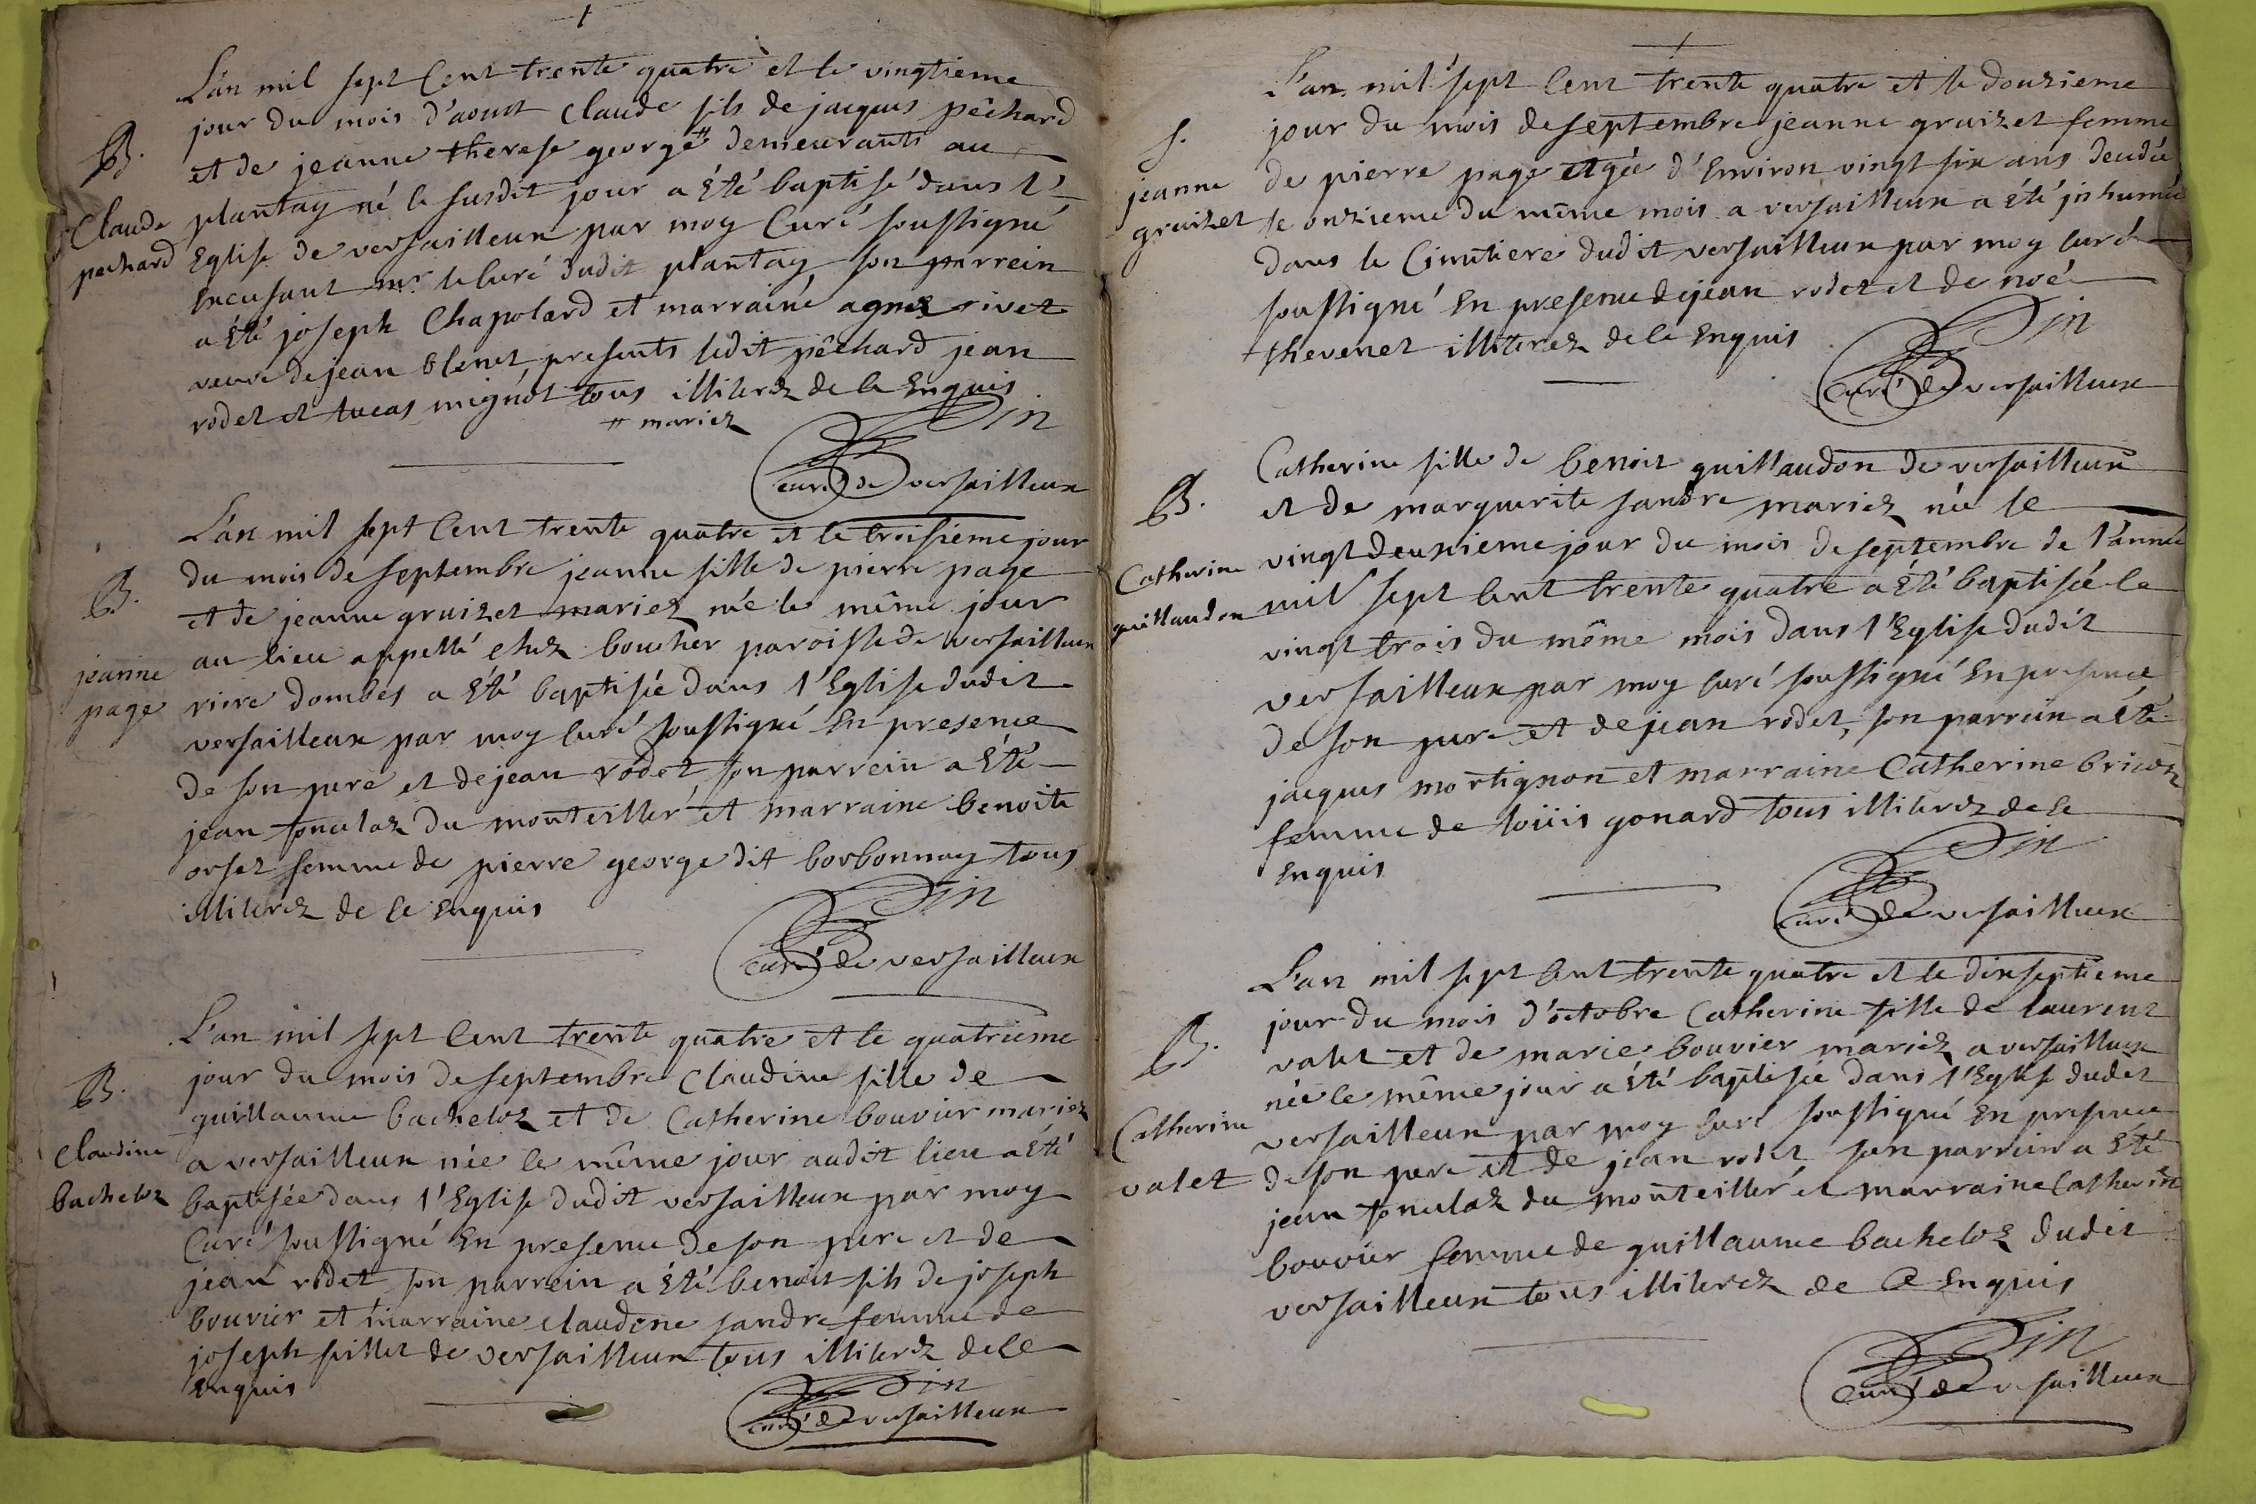 L'an mil sept Cent trente quatre et le vingtieme
jour du mois d'aoust Claude fils de jacques pêchard
et de jeanne therese george # demeurants au
B.
Claude
pechard
plantay né le susdit jour a été baptisé dans l'
Eglise de versailleux par moy Curé soussigné
Excusant mr le Curé dudit plantay son parrein
a été joseph Chapolard et marraine agnez rivet
veuve de jean blenet, presents ledit pêchard jean
rodet et lucas mignot tous illiterez de ce Enquis
# mariez
Din
curé de versailleux
L'an mil sept Cent trente quatre et le troisiéme jour
du mois de septembre jeanne fille de pierre page
B.
jeanne
page
et de jeanne gruizet mariez née le même jour
au lieu appellé chez boucher paroisse de versailleux
riere dombes a été baptisée dans l'Eglise dudit
versailleux par moy Curé soussigné En presence
de son pere et de jean rodet son parrein a été
jean fonulaz du monteiller et marraine benoite
orset femme de pierre george dit borbonnay tous
illiterez de ce Enquis
Din
curé de versailleux
L'an mil sept Cent trente quatre et le quatrieme
jour du mois de septembre Claudine fille de
B.
Claudine
bacheloz
guillaume bacheloz et de Catherine bouvier mariez
a versailleux née le même jour audit lieu a été
baptisée dans l'Eglise dudit versailleux par moy
Curé soussigné En presence de son pere et de
jean rodet son parrein a été benoit fils de joseph
bouvier et marraine claudine jandre femme de
joseph fillet de versailleux tous illiterez de ce
Enquis
Din
curé de versailleux
L'an mil sept Cent trente quatre et le douzieme
jour du mois de septembre jeanne gruizet femme
S.
jeanne
gruizet
de pierre page agée d'Environ vingt six ans decedée
le onzieme du même mois a versailleux a été inhumée
dans le Cimetiere dudit versailleux par moy curé
soussigné En presence de jean rodet et de noé
thevenet illiterez de ce Enquis
Din
curé de versailleux
Catherine fille de benoit guillaudon de versailleux
B.
Catherine
guillaudon
et de marguerite jandre mariez née le
vingt deuxieme jour du mois de septembre de l'année
mil sept Cent trente quatre a été baptisée le
vingt trois du même mois dans l'Eglise dudit
versailleux par moy curé soussigné En presence
de son pere et de jean rodet, son parrein a été
jacques mortignon et marraine Catherine bricoz
femme de loüis gonard tous illiterez de ce
Enquis
Din
curé de versailleux
L'an mil sept Cent trente quatre et le dixseptieme
jour du mois d'octobre Catherine fille de laurent
B.
Catherine
valet
valet et de marie bouvier mariez a versailleux
née le même jour a été baptisée dans l'Eglise dudit
versailleux par moy curé soussigné En presence
de son pere et de jean rodet son parrein a été
jean fonulaz du monteiller et marraine Catherine
bouvier femme de guillaume bacheloz dudit
versailleux tous illiterez de ce Enquis
Din
curé de versailleux